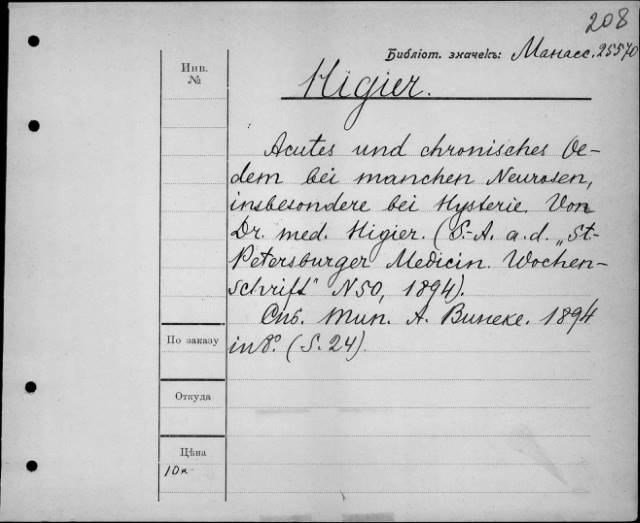 208
Библіот. значекъ: Манасс. 25570
Инв.
№
Higier.
Acutes und chronisches Oe-
dem bei manchen Neurosen,
insbesondere bei Hysterie. Von
Dr. med. Higier. (S.-A. a. d. „St.-
Petersburger Medicin. Wochen-
schrift" N50, 1894).
Спб. Тип. А. Винеке. 1894
in 8°. (S. 24).
По заказу
Откуда
Цѣна
10к